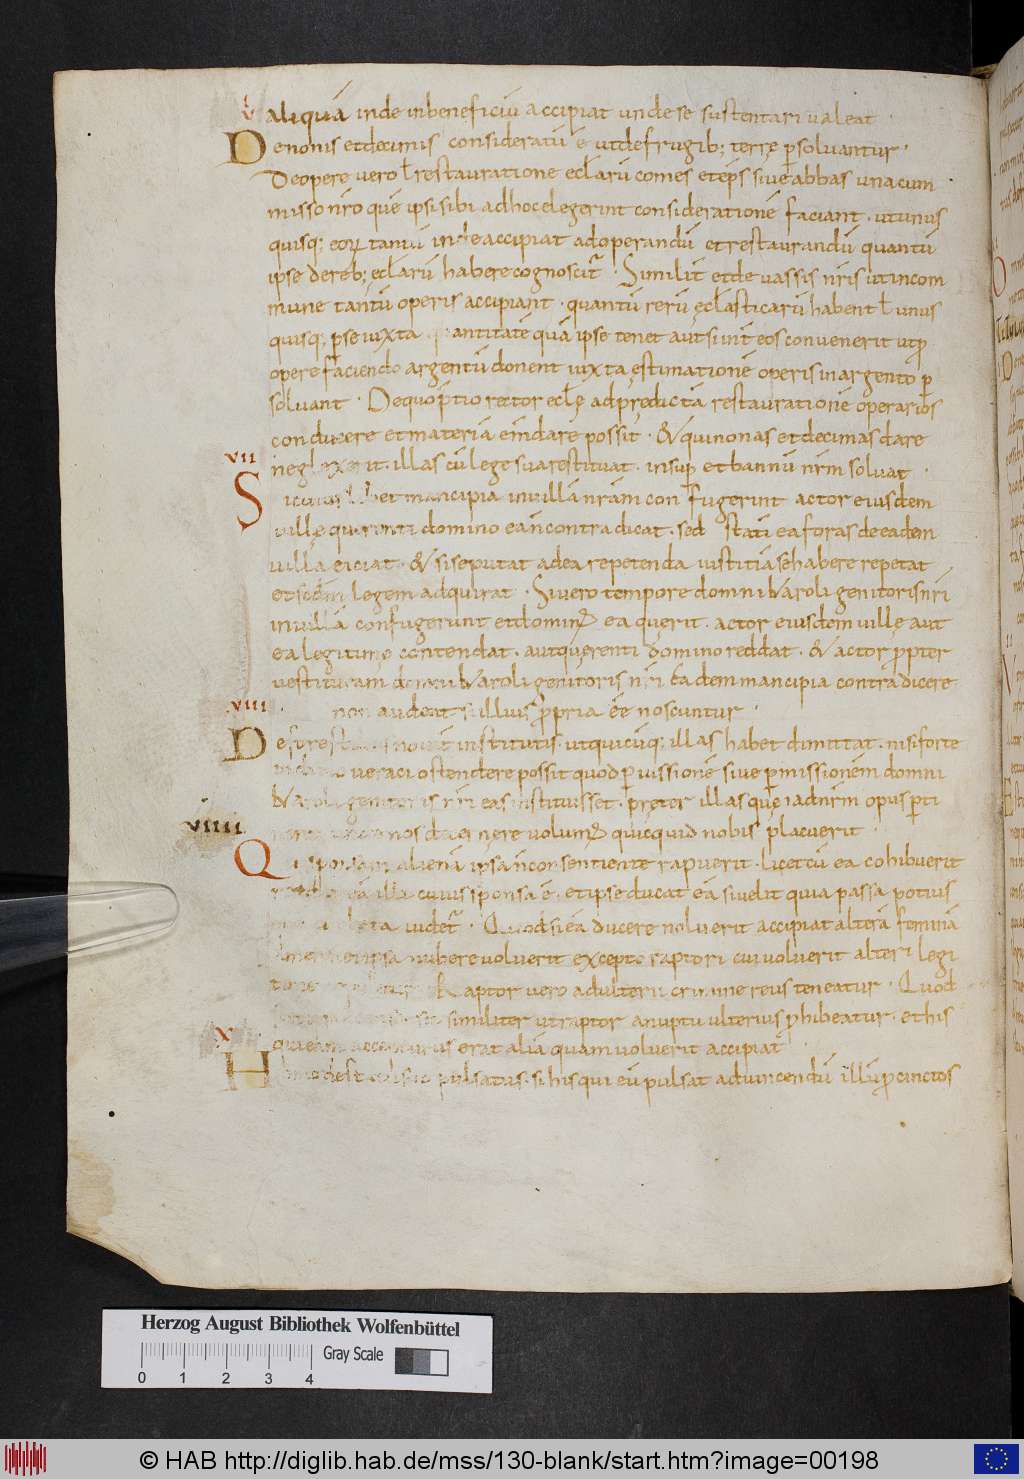 aliquā inde inbeneficiū accipiat unde se sustentari ualeat ·
De nonis et decimis consideratū ē ut de frugib; terrę ꝑsoluantur ·
De opere uero ł restauratione ecłarū comes et eps̄ siue abbas una cum
misso nr̄o quē ipsi sibi ad hoc elegerint considerationē faciant · ut unus
quisq; eoꝝ tantū inde accipiat ad operandū et restaurandū quantū
ipse de reb; ecłarū habere cognoscit̄ · Similit̄ et de uassis nr̄is ut incom
mune tantū operis accipiant · quantū rerū ęcłasticarū habent ł unus
quisq; ꝑ se iuxta quantitatē quā ipse tenet aut si int̄ eos conuenerit ut ꝓ
opere faciendo argentū donent iuxta ęstimationē operis in argento ꝑ
soluant · De quo p̄tio rector ecłę ad prędictā restaurationē operarios
conducere et materiā emdare possit · & qui nonas et decimas dare
VII neglexerit · illas cū lege sua restituat · insuꝑ et bannū nr̄m soluat ·
Si cuius libet mancipia in uillā nr̄am confugerint actor eiusdem
uillę querenti domino ea n̄ contradicat · sed statī ea foras de eadem
uilla eiciat · & si se putat ad ea repetenda iustitiā se habere repetat
et scd̄m legem adquirat · Si uero tempore domni karoli genitoris nr̄i
in uillā confugerunt et dominus ea querit · actor eiusdem uillę aut
ea legitimo contendat · aut querenti domino reddat · & actor ꝓpter
uestituram domni karoli genitoris nr̄i eadem mancipia contradicere
VIII non audeat si illius ꝓpria eē noscuntur ·
De forestis nouit̄ institutis ut quicūq; illas habet dimittat · nisi forte
indicio ueraci ostendere possit quod ꝑ iussionē siue ꝑmissionēm domni
karoli genitoris nr̄i eas instituisset · pręter illas quę ad nr̄m opus ꝑti
VIIII nos decernere uolumus quicquid nobis placuerit ·
Qui sponsam alienā ipsa n̄ consentiente rapuerit · licet cū ea cohibuerit
illa cuius sponsa ē · et ipse ducat eā si uelit quia passa potius
iudet̄ · Quod si eā ducere noluerit accipiat alterā feminā
ipsa nubere uoluerit excepto raptori cui uoluerit alteri legi
Raptor uero adulterii crimine reus teneatur · Quod
similiter ut raptor a nuptu ulterius ꝓhibeatur · et his
X qui eam accepturus erat aliā quam uoluerit accipiat
H pulsatus · si his qui eū pulsat ad uincendū illū ꝓcinctos
Herzog August Bibliothek Wolfenbüttel
Gray Scale
0 1 2 3 4
© HAB http://diglib.hab.de/mss/130-blank/start.htm?image=00198